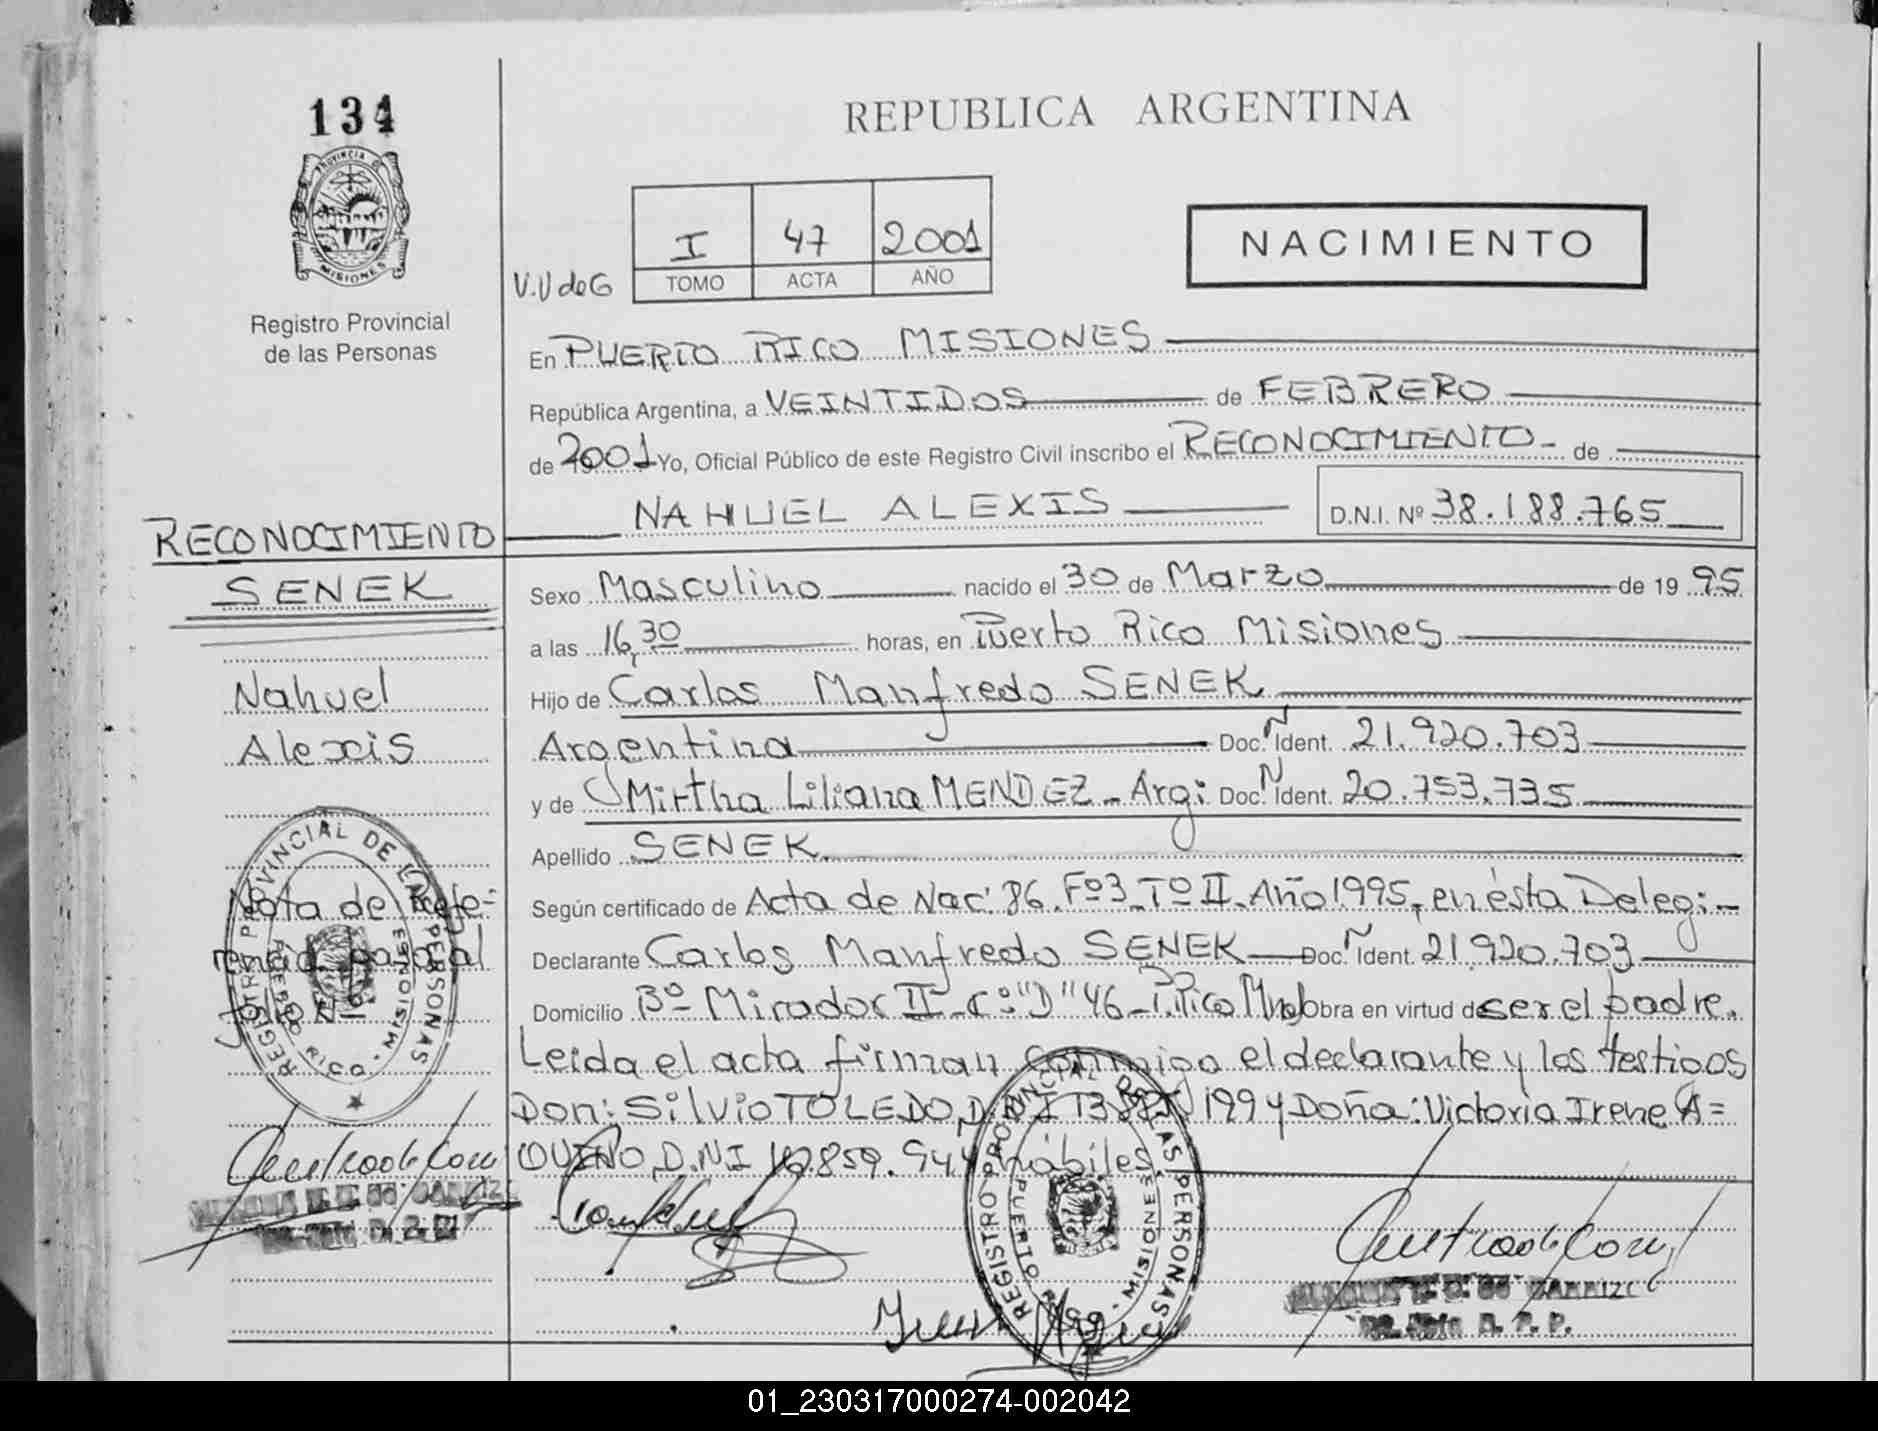 134
PROVINCIA D
MISIONES
Registro Provincial
de las Personas
RECONOCIMIENTO
SENEK
Nahuel
Alexis
Nota de Refe=
rencia
REGISTRO PROVINCIAL DE LAS PERSONAS
PUERTO RICO - MISIONES
REPUBLICA ARGENTINA
V.V de G
I 47 2001
TOMO ACTA AÑO
NACIMIENTO
En PUERTO RICO MISIONES
República Argentina, a VEINTIDOS de FEBRERO
de 2001 Yo, Oficial Público de este Registro Civil inscribo el RECONOCIMIENTO - de
NAHUEL ALEXIS D.N.I. Nº 38.188.765
Sexo Masculino nacido el 30 de Marzo de 19 95
a las 16,30 horas, en Puerto Rico Misiones
Hijo de Carlos Manfredo SENEK
Argentina Doc. N Ident. 21.920.703
y de Mirtha Liliana MENDEZ - Arg: Doc. N Ident. 20.753.735
Apellido SENEK
Según certificado de Acta de Nac: 86. Fº3 - Tº II - Año 1995, en ésta Deleg: -
Declarante Carlos Manfredo SENEK - Doc. N Ident. 21.920.703
Domicilio Bº - Mirador II - Cº "D" 46 - P. Rico Mns Obra en virtud d ser el padre.
Leida el acta firman conmigo el declarante y los testigos
Don: Silvio TOLEDO, D.N.I 13 199 y Doña: Victoria Irene A=
QUINO, D.N.I 859.944 hábiles
REGISTRO PROVINCIAL DE LAS PERSONAS
PUERTO RICO - MISIONES
01_230317000274-002042